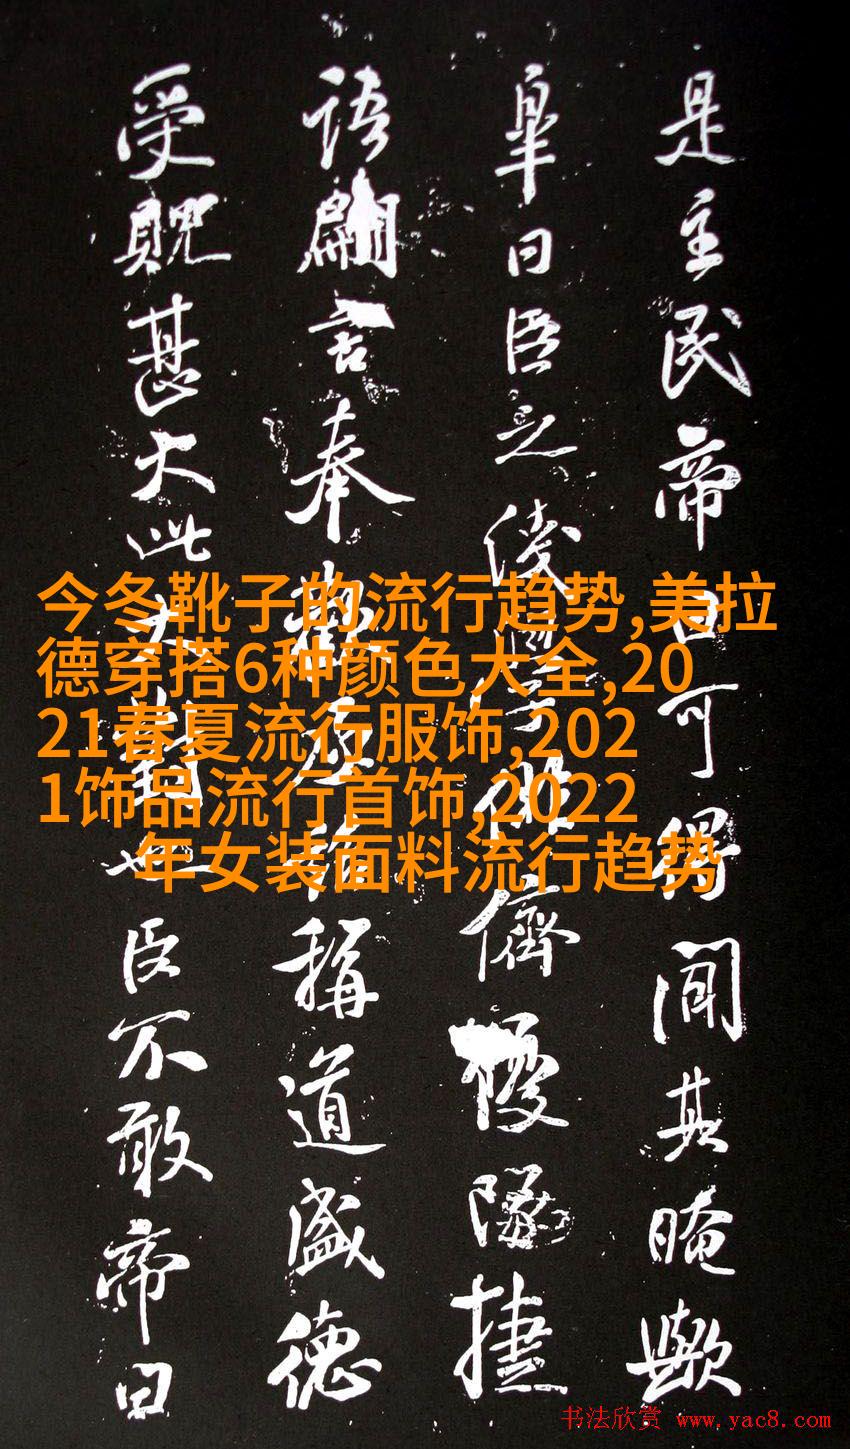 是主民帝曰可得聞其晻歟
皋曰臣之後儕優隊捷
語闢言奉稱道盛德
受貺甚大此對也臣不敢帝曰
今冬靴子的流行趋势,美拉
德穿搭6种颜色大全,20
21春夏流行服饰,202
1饰品流行首饰,2022
年女装面料流行趋势
书法欣赏 www.yac8.com